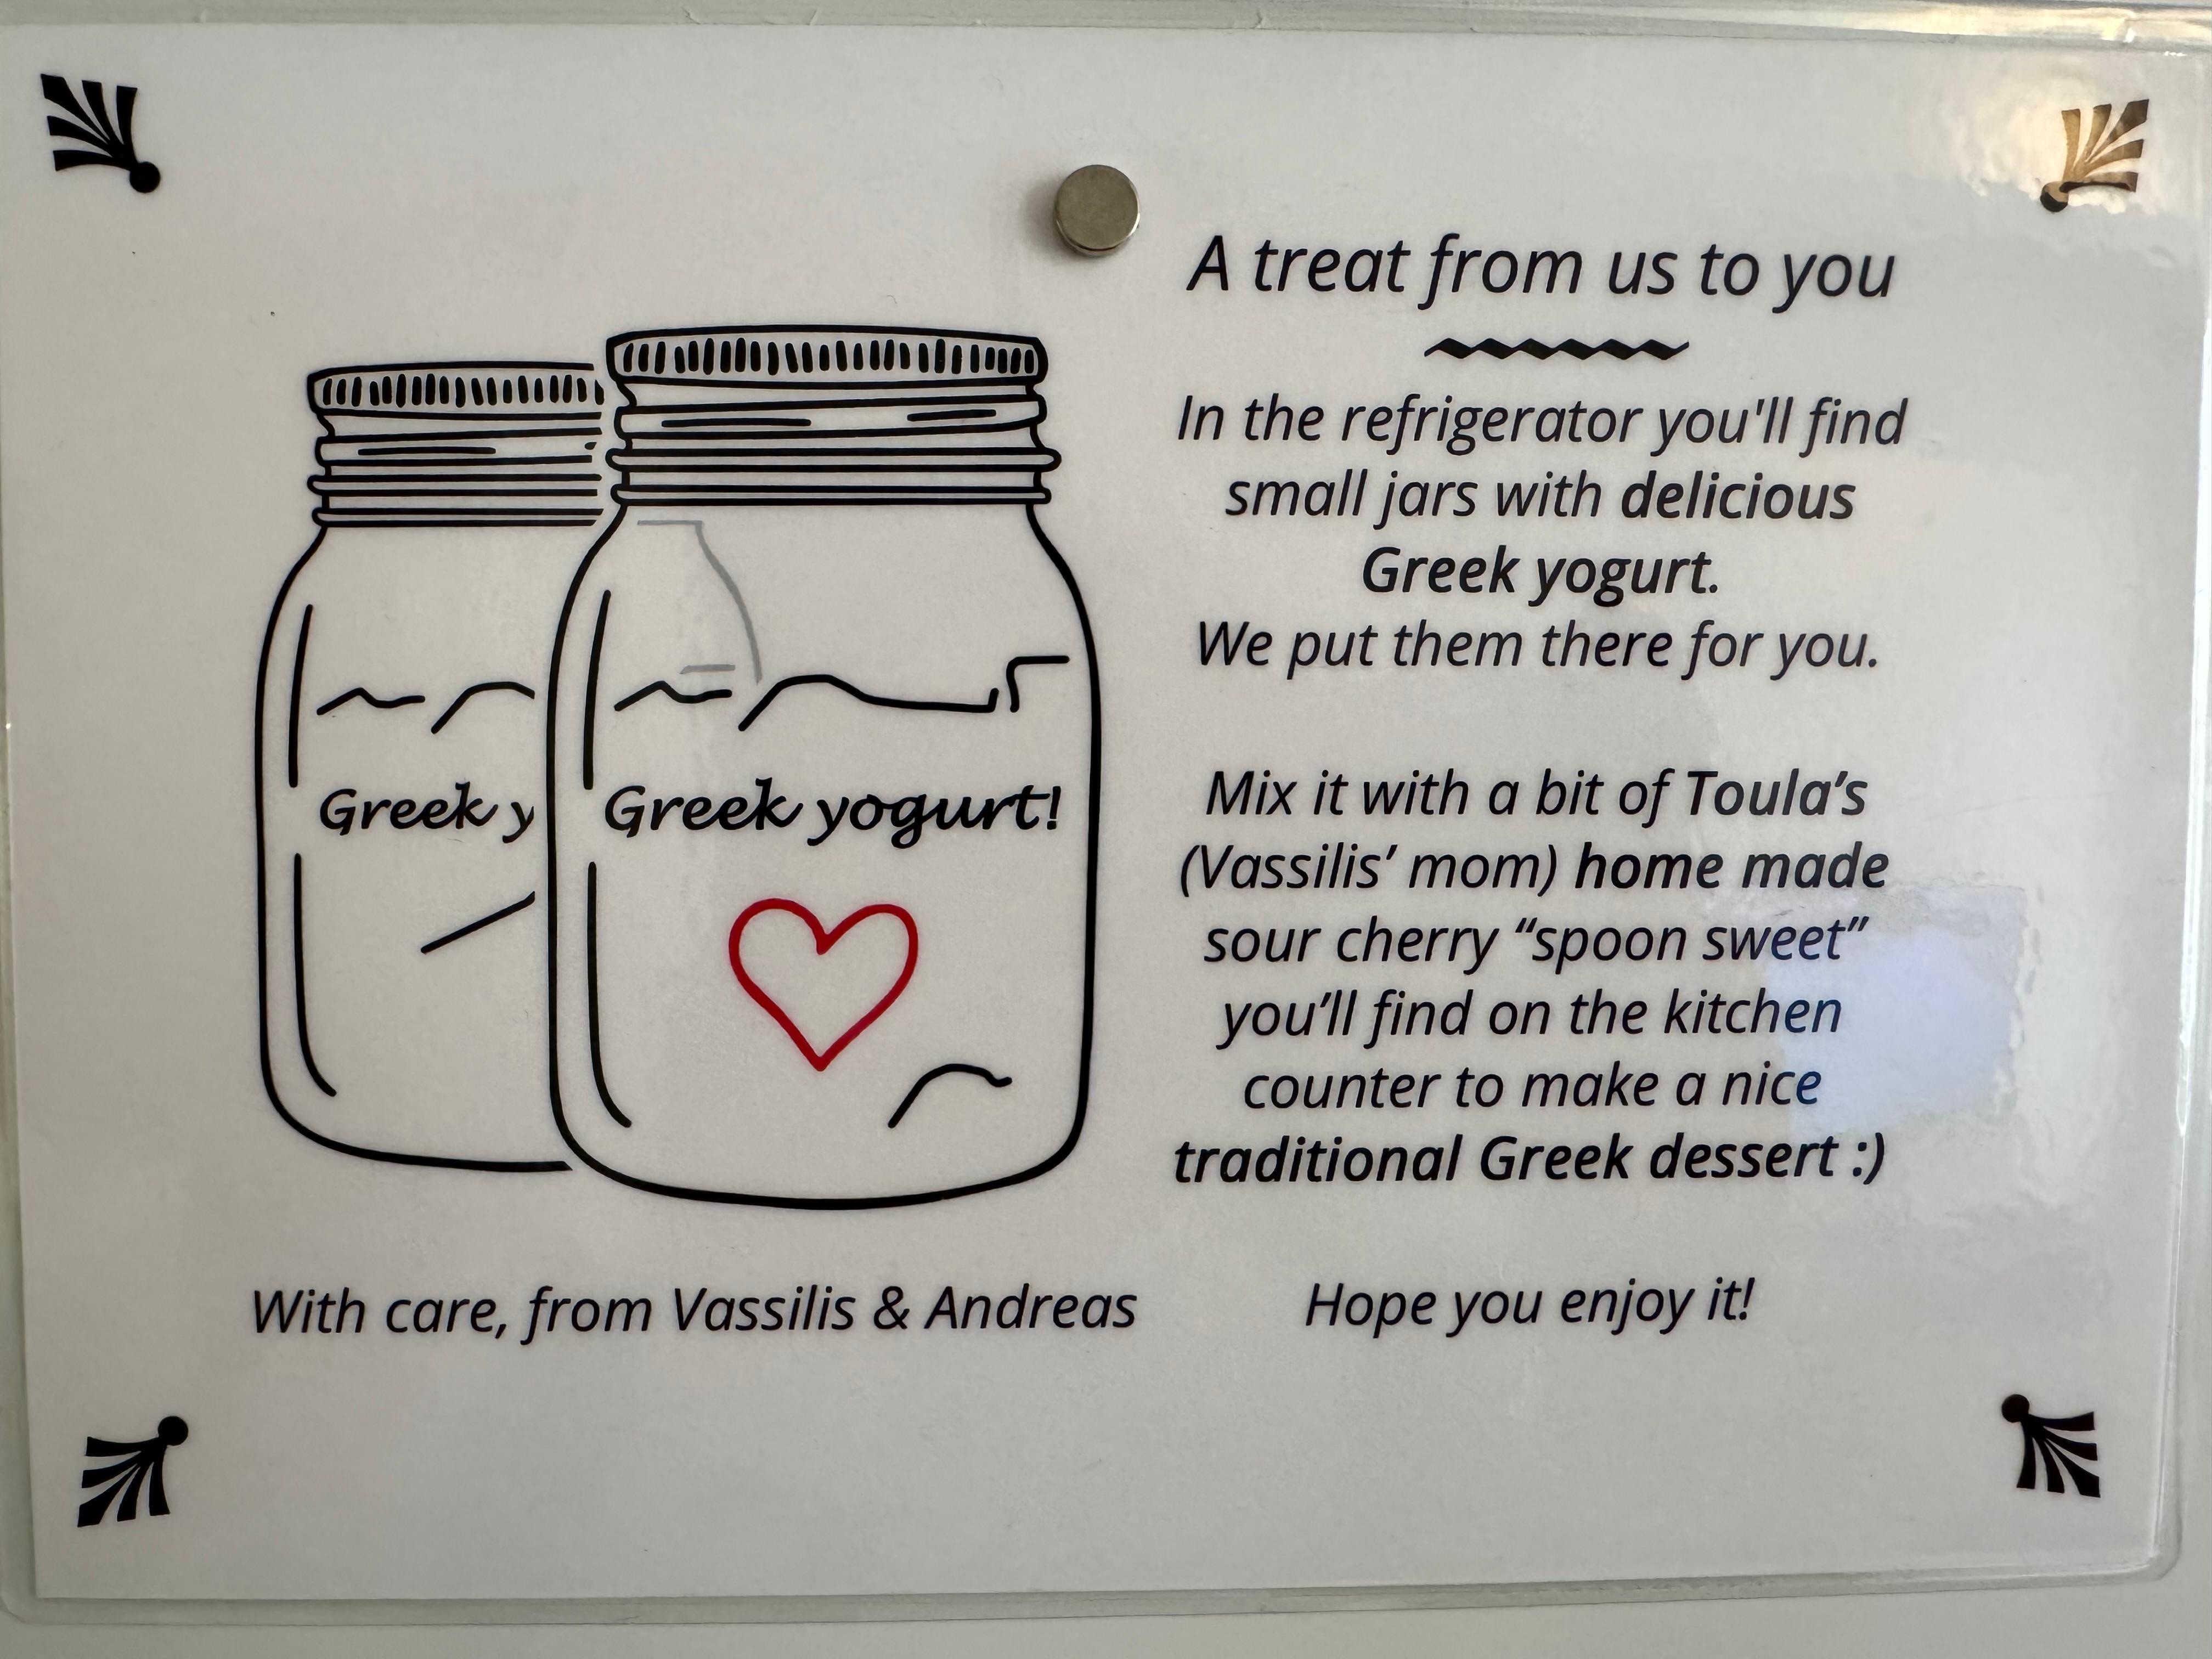 A treat from us to you
In the refrigerator you'll find
small jars with delicious
Greek yogurt.
We put them there for you.
Mix it with a bit of Toula’s
(Vassilis’ mom) home made
sour cherry “spoon sweet”
you’ll find on the kitchen
counter to make a nice
traditional Greek dessert :)
Hope you enjoy it!
Greek y
Greek yogurt!
With care, from Vassilis & Andreas